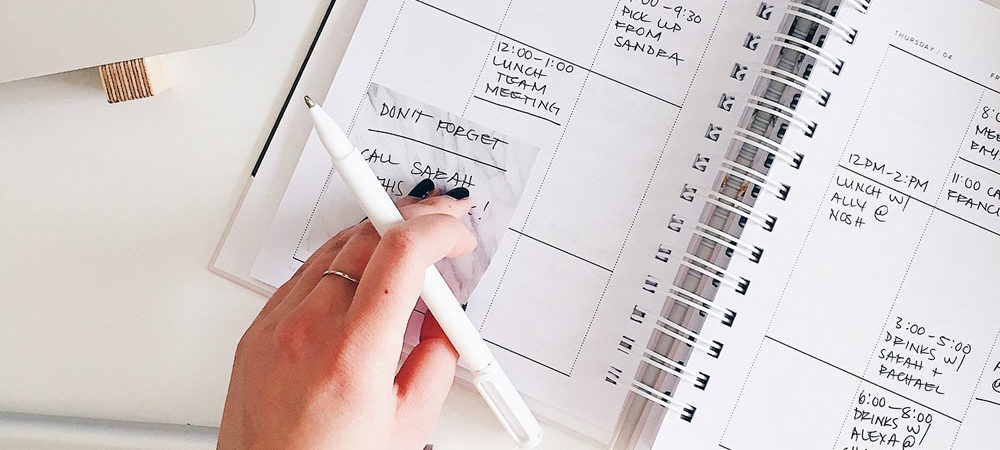 9:30
PICK UP
FROM
SANDRA
12:00-1:00
LUNCH
TEAM
MEETING
DON'T FORGET
CALL SARAH
THIS
!
THURSDAY / 04
12PM-2:PM
LUNCH W/
ALLY @
NOSH
3:00-5:00
DRINKS W/
SARAH +
RACHAEL
6:00-8:00
DRINKS W/
ALEXA @
11:00